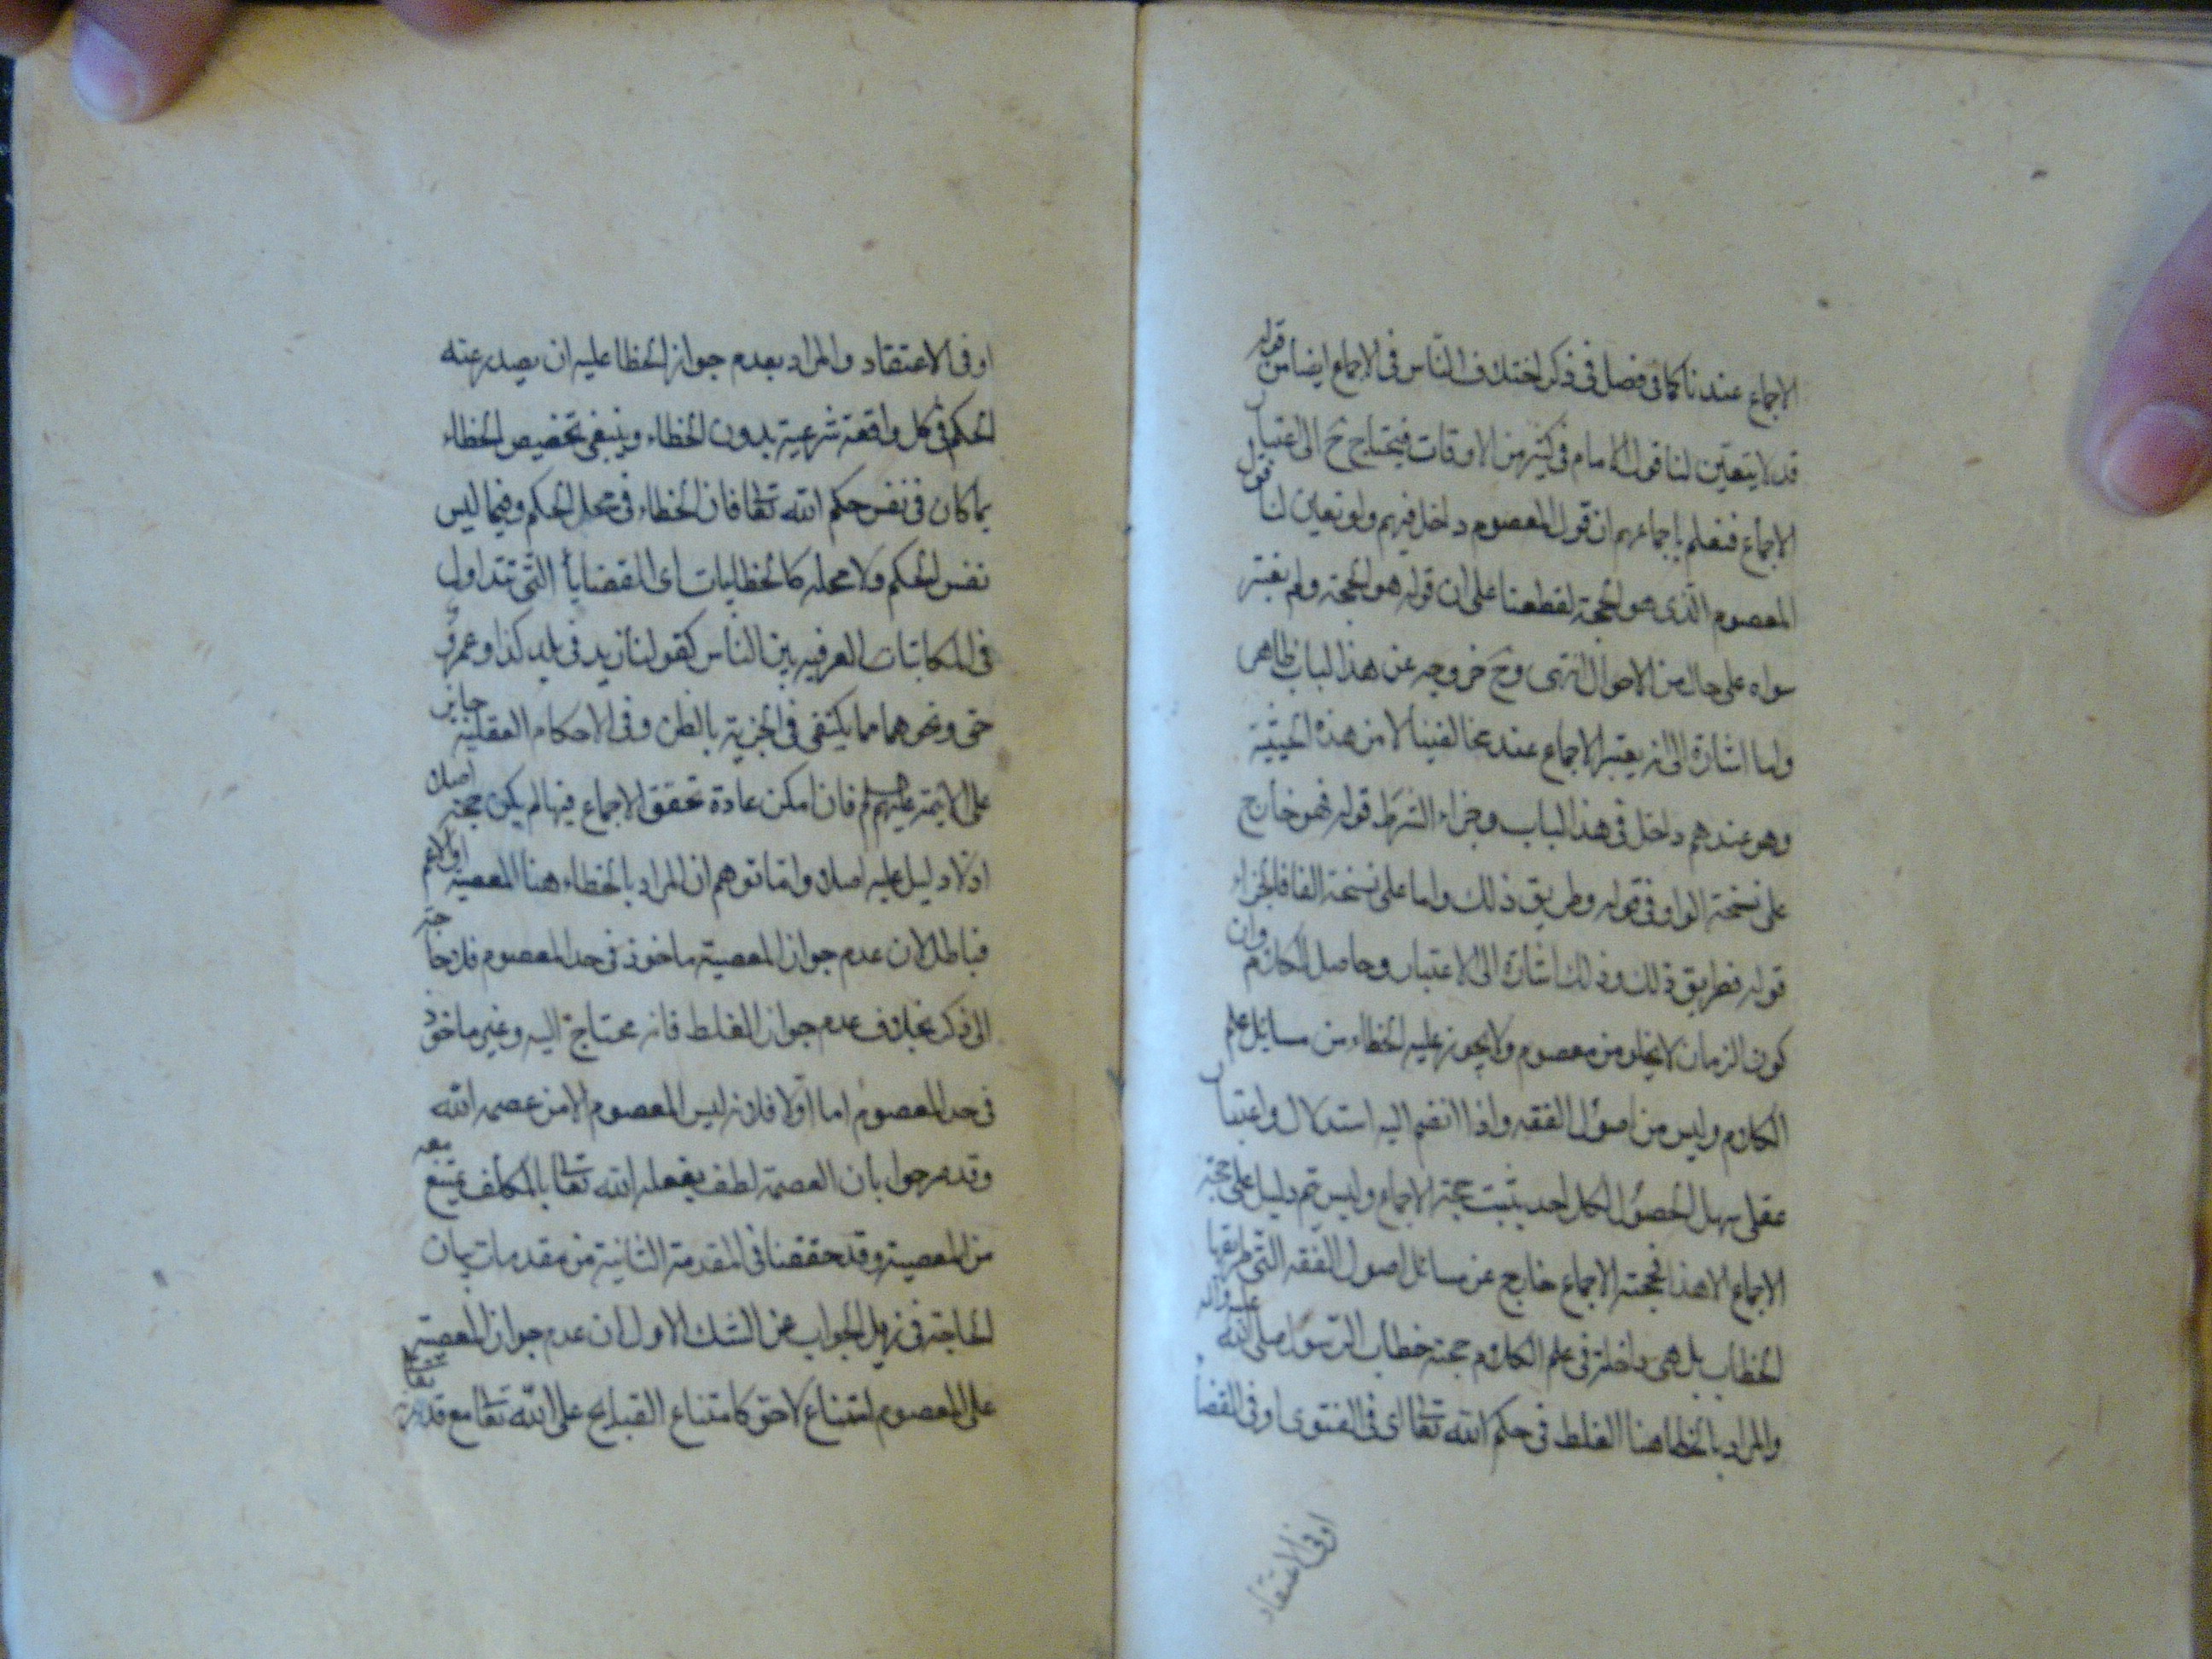 الاجماع عندنا كما فى فصل فى ذكر اختلاف الناس فى الاجماع ايضا من قوله
قد لا يتعين لنا قول الامام فى كثير من الاوقات فيحتاج ح الى اعتبار
الاجماع فنعلم باجماعهم ان قول المعصوم داخل فيهم ولو تعين لنا قول
المعصوم الذى هو الحجة لقطعنا على ان قوله هو الحجة ولم يعتبر
سواه على حال من الاحوال انتهى وح خروجه عن هذا الباب ظاهر
ولما اشارة الى انه يعتبر الاجماع عند مخالفينا لا من هذه الحيثية
وهو عندهم داخل فى هذا الباب وجزاء الشرط قوله فهو خارج
على نسخة الواو فى قوله وطريق ذلك واما على نسخة الفا فالجزاء
قوله فطريق ذلك وذلك اشارة الى الاعتبار وحاصل الكلام وان
كون الزمان لا يخلو من معصوم ولا يجوز عليه الخطاء من مسايل علم
الكلام وليس من اصول الفقه واذا انضم اليه استدلال واعتبار
عقلى سهل الحصول لكل احد يثبت حجية الاجماع وليس ثم دليل على حجية
الاجماع الا هذا فحجية الاجماع خارج عن مسائل اصول الفقه التى طريقها
الخطاب بل هى داخلة فى علم الكلام حجية خطاب الرسول صلى الله عليه واله
والمراد بالخطا هنا الغلط فى حكم الله تعالى اى فى الفتوى او فى القضا
او فى الاعتقاد
او فى الاعتقاد والمراد بعدم جواز الخطا عليه ان يصدر عنه
الحكم فى كل واقعة شرعية بدون الخطاء وينبغى تخصيص الخطاء
بما كان فى نفس حكم الله تعالى فان الخطاء فى محل الحكم وفيما ليس
نفس الحكم ولا محله كالخطابيات اى القضايا التى تتداول
فى المكاتبات العرفيه بين الناس كقولنا زيد فى بلد كذا وعمرو
حى ونحوهما مما يكتفى فى الجزية بالظن وفى الاحكام العقلية جايز
على الايمة عليهم السلم فان امكن عادة تحقق الاجماع فيها لم يكن حجة اصلا
اذ لا دليل عليه اصلا واما توهم ان المراد بالخطاء هنا المعصية او الاعم
فباطل لان عدم جواز المعصية ماخوذ فى حد المعصوم فلا حاجة
الى ذكره بخلاف عدم جواز الغلط فانه محتاج اليه وغير ماخوذ
فى حد المعصوم اما اولا فلانه ليس المعصوم الا من عصمه الله
وقد صرحوا بان العصمة لطف يفعله الله تعالى بالمكلف يمتنع معه
من المعصية وقد حققنا فى المقدمة الثانية من مقدمات بيان
الحاجة فى ذيل الجواب عن الشك الاول ان عدم جواز المعصية
على المعصوم امتناع لاحق كامتناع القبايح على الله تعالى مع قدرته